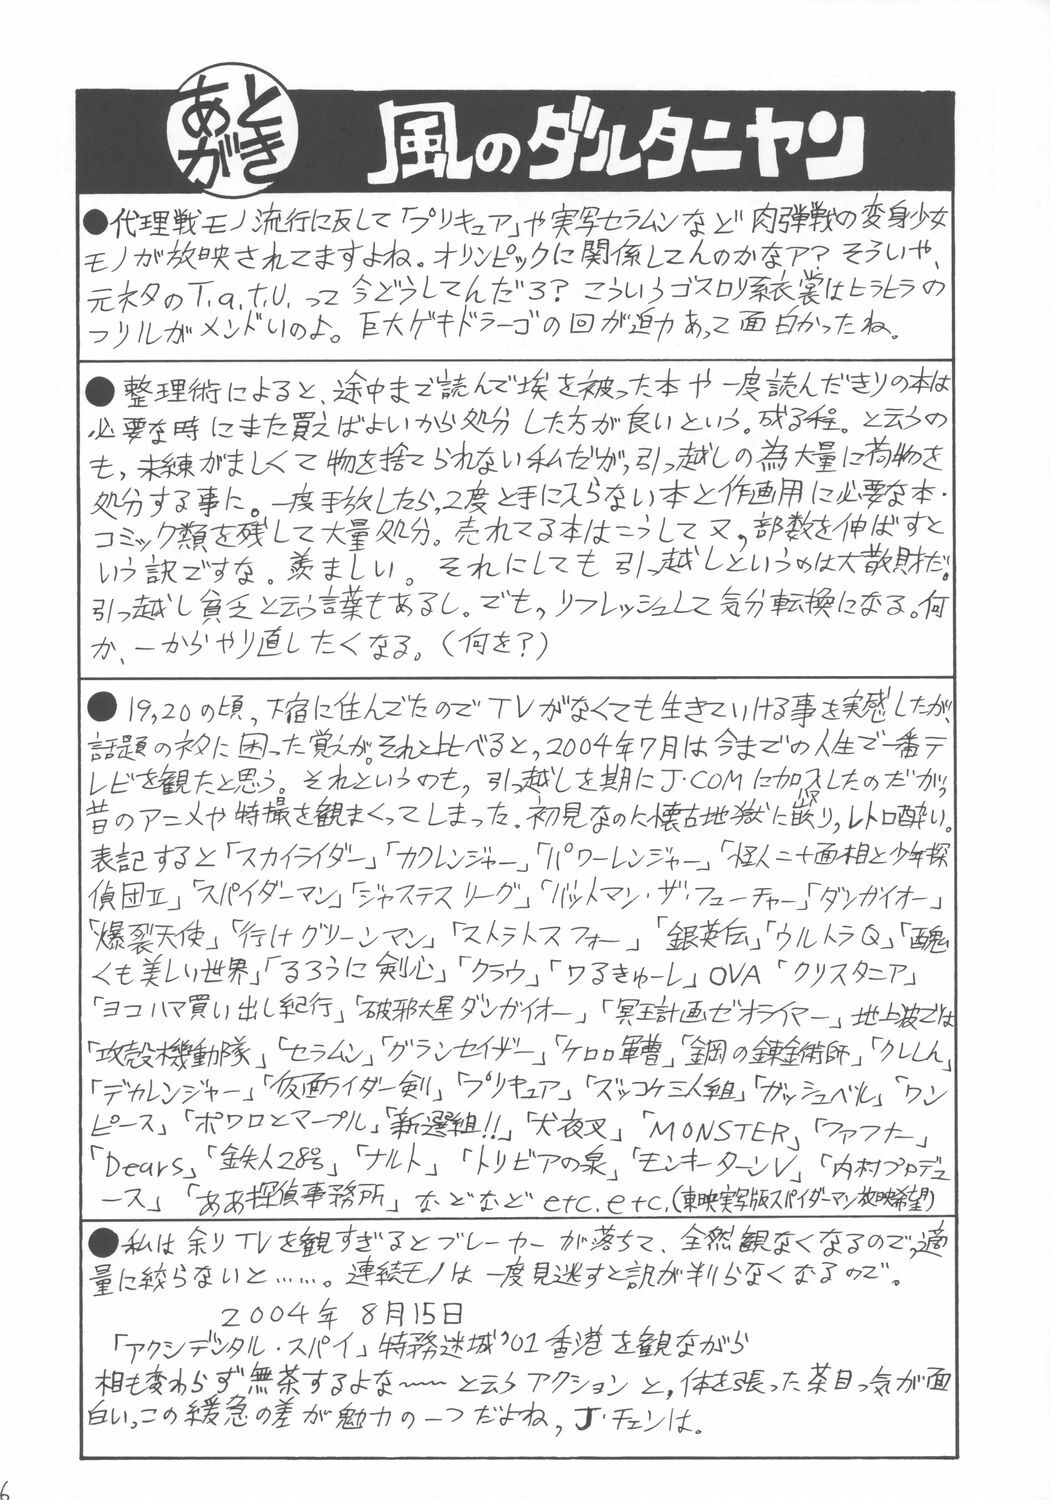 あとがき 風のダルタニヤン
●代理戦モノ流行に反して「プリキュア」や実写セラムンなど肉弾戦の変身少女
モノが放映されてますよね。オリンピックに関係してんのかなァ?そういや、
元ネタのT.a.t.U.って今どうしてんだろ?こういうゴスロリ系衣裳はヒラヒラの
フリルがメンドいのよ。巨大ゲキドラーゴの回が迫力あって面白かったね。
●整理術によると、途中まで読んで埃を被った本や一度読んだきりの本は
必要な時にまた買えばよいから処分した方が良いという。成る程。と云うの
も、未練がましくて物を捨てられない私だが、引っ越しの為大量に荷物を
処分する事に。一度手放したら、2度と手に入らない本と作画用に必要な本・
コミック類を残して大量処分。売れてる本はこうして又、部数を伸ばすと
いう訳ですな。羨ましい。それにしても引っ越しというのは大散財だ。
引っ越し貧乏と云う言葉もあるし。でも、リフレッシュして気分転換になる。何
か、一からやり直したくなる。(何を?)
●19,20の頃、下宿に住んでたのでTVがなくても生きていける事を実感したが、
話題のネタに困った覚えが。それと比べると、2004年7月は今までの人生で一番テ
レビを観たと思う。それというのも、引っ越しを期にJ・COMに加入したのだが、
昔のアニメや特撮を観まくってしまった。初見なのに懐古地獄に嵌り、レトロ酔い。
表記すると「スカイライダー」「カクレンジャー」「パワーレンジャー」「怪人二十面相と少年探
偵団Ⅱ」「スパイダーマン」「ジャステスリーグ」「バットマン・ザ・フューチャー」「ダンガイオー」
「爆裂天使」「行けグリーンマン」「ストラトスフォー」「銀英伝」「ウルトラQ」「醜
くも美しい世界」「るろうに剣心」「クラウ」「ワるきゅーレ」OVA「クリスタニア」
「ヨコハマ買い出し紀行」「破邪大星ダンガイオー」「冥王計画ゼオライマー」地上波では
「攻殻機動隊」「セラムン」「グランセイザー」「ケロロ軍曹」「鋼の錬金術師」「クレしん」
「デカレンジャー」「仮面ライダー剣」「プリキュア」「ズッコケ三人組」「ガッシュベル」「ワン
ピース」「ポワロとマープル」「新選組!!」「犬夜叉」「MONSTER」「ファフナー」
「Dears」「鉄人28号」「ナルト」「トリビアの泉」「モンキーターンV」「内村プロデュ
ース」「ああ探偵事務所」などなどetc.etc.(東映実写版スパイダーマン放映希望)
●私は余りTVを観すぎるとブレーカーが落ちて、全然観なくなるので、適
量に絞らないと……。連続モノは一度見逃すと訳が判らなくなるので。
2004年8月15日
「アクシデンタル・スパイ」特務迷城'01香港を観ながら
相も変わらず無茶するよな〜〜と云うアクションと、体を張った茶目っ気が面
白い。この緩急の差が魅力の一つだよね、J・チェンは。
6